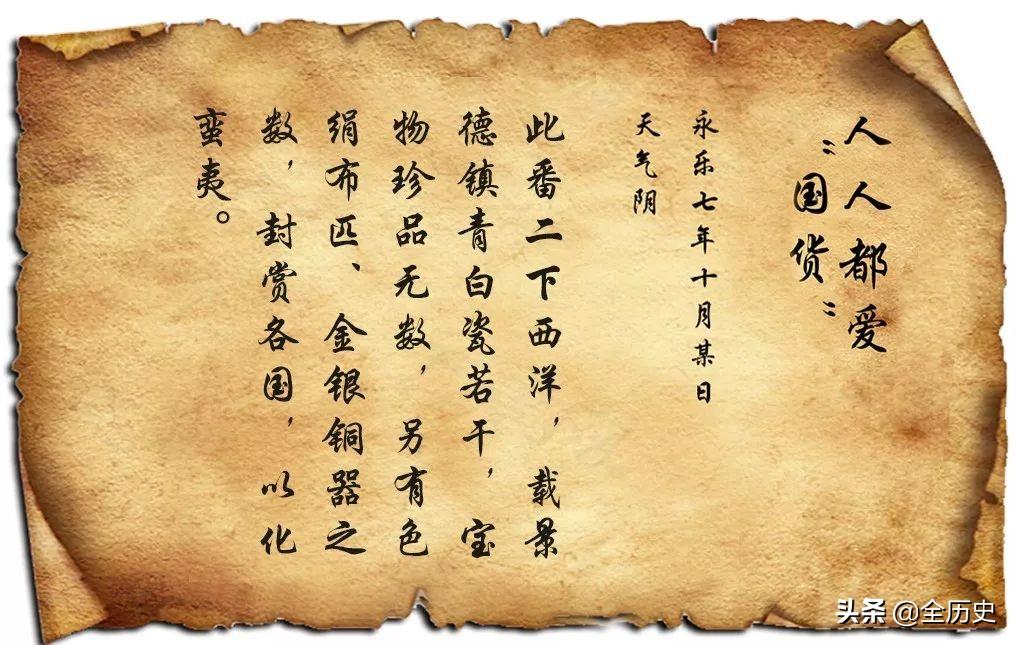 人人都爱
“国货”
永乐七年十月某日
天气阴
此番二下西洋，载景
德镇青白瓷若干，宝
物珍品无数，另有色
绢布匹、金银铜器之
数，封赏各国，以化
蛮夷。
头条 @全历史